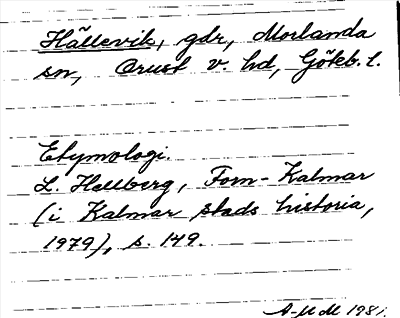 Hällevik, gdr, Morlanda
sn, Orust v. hd, Göteb. l.
Etymologi.
L. Hellberg, Forn-Kalmar
(i Kalmar stads historia,
1979), s. 149.
A-M M 1981.